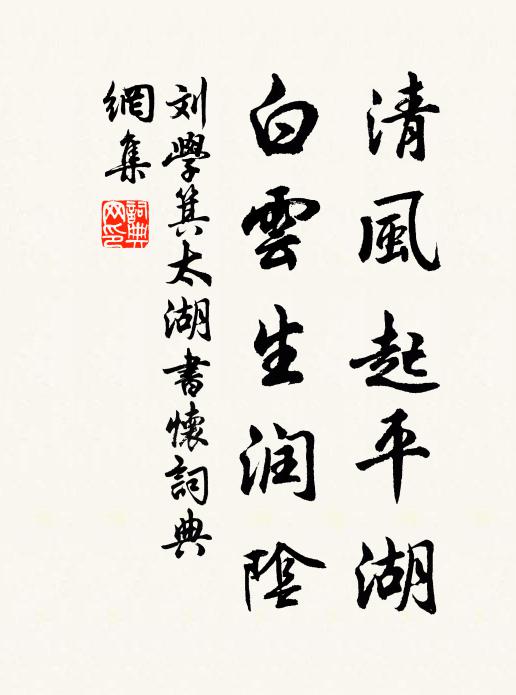 清風起平湖
白雲生润陰
刘學箕太湖書懷詞典
網集
詞典網印